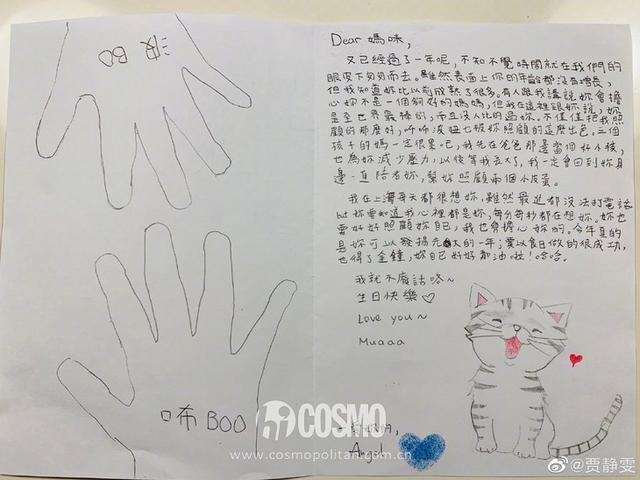 波BO
咘BOO
Dear 媽咪，
又已經過了一年呢，不知不覺時間就在我們的
眼皮下匆匆而去。雖然表面上你的年齡都沒有增長，
但我知道妳比以前成熟了很多。有人跟我講說妳會擔
心妳不是一個夠好的媽媽，但我在這裡跟妳說，妳
是全世界最棒的，而且沒人比的過妳。不僅僅把我照
顧的那麼好，咘咘波妞也被妳照顧的這麼出色。三個
孩子的媽一定很累吧，我先在爸爸那邊當個好小孩，
也為妳減少壓力，以後等我長大了，我一定會回到妳身
邊一直陪者妳，幫妳照顧兩個小皮蛋。
我在上海每天都很想妳，雖然最近都沒法打電話
but 妳要知道我心裡都是妳，每分每秒都在想妳。妳也
要好好照顧妳自己，我也會擔心妳的。今年真的
是妳可以發揚光大的一年；棄以食日做的很成功，
也得了金鐘，妳自己好好加油啦！哈哈。
我就不廢話咯~
生日快樂♡
Love you~
Muaaa
Angel
COSMO
www.cosmopolitan.com.cn
@贾静雯